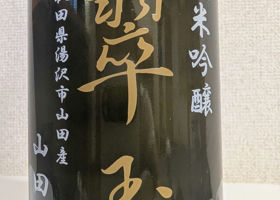 米吟醸
翠玉
田県湯沢市山田産
山田